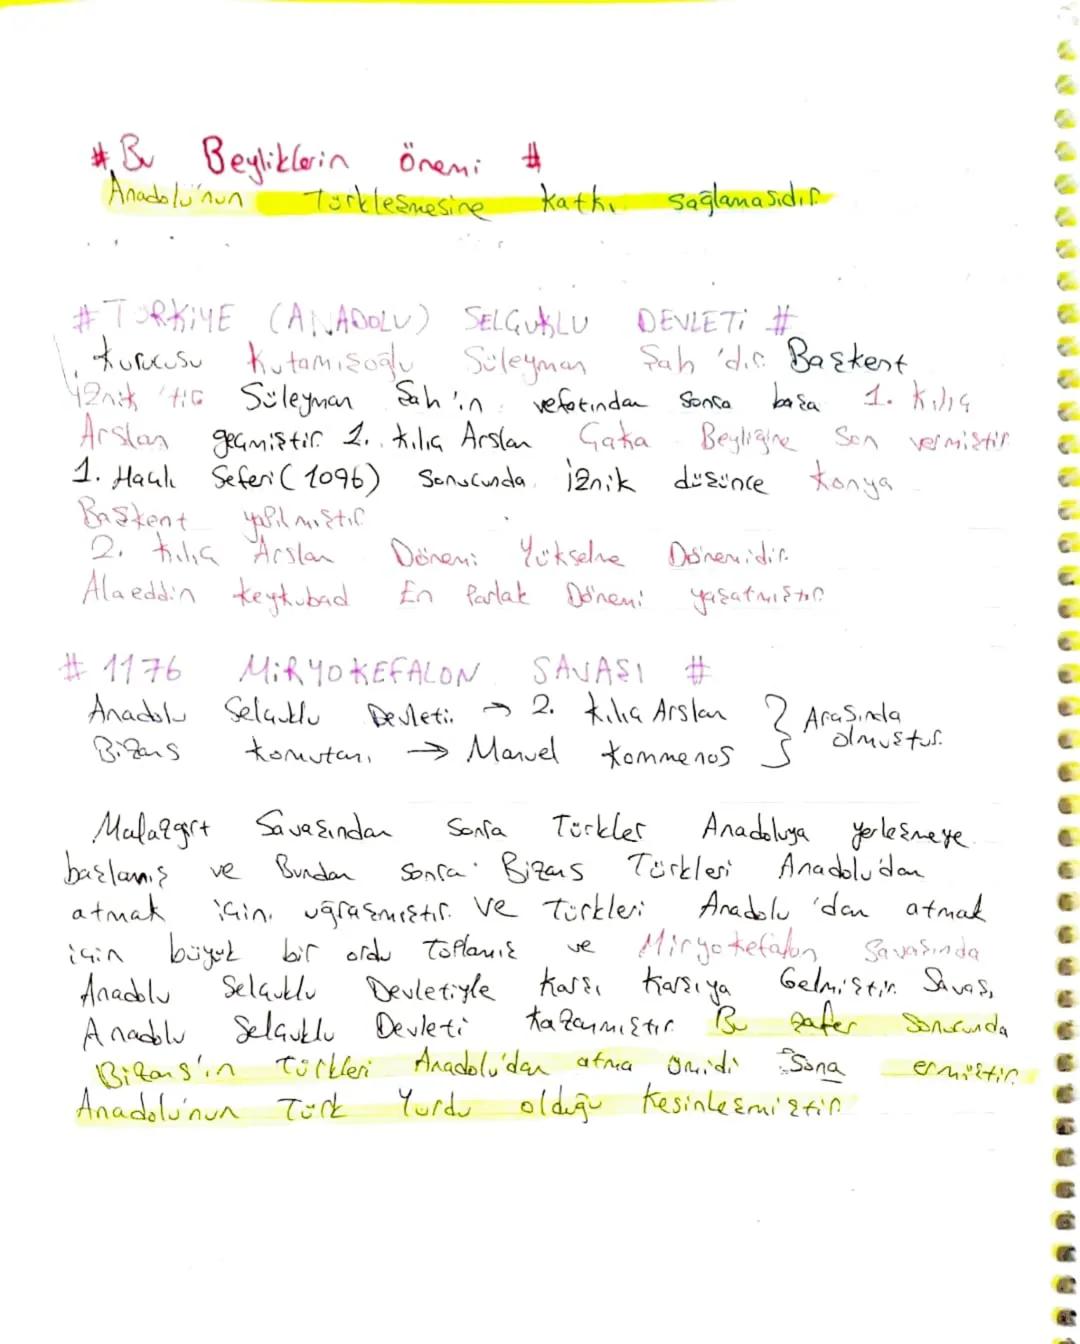 # Bu Beyliklerin önemi #
Anadolu'nun Türkleşmesine katkı sağlamasıdır.
# TÜRKİYE (ANADOLU) SELÇUKLU DEVLETİ #
Kurucusu Kutamışoğlu Süleyman Şah 'dır. Başkent
İznik 'tir Süleyman Şah'ın vefatından sonra başa 1. Kılıç
Arslan geçmiştir. 1. Kılıç Arslan Çaka Beyliğine Son vermiştir.
1. Haçlı Seferi (1096) Sonucunda İznik düşünce Konya
Başkent yapılmıştır.
2. Kılıç Arslan Dönemi Yükselme Dönemidir.
Alaeddin Keykubad En Parlak Dönemi yaşatmıştır.
# 1176 MİRYOKEFALON SAVAŞI #
Anadolu Selçuklu Devleti. → 2. Kılıç Arslan } Arasında
Bizans Komutanı → Manuel Kommenos } olmuştur.
Malazgirt Savaşından Sonra Türkler Anadoluya yerleşmeye
başlamış ve Bundan sonra Bizans Türkleri Anadolu'dan
atmak için uğraşmıştır. Ve Türkleri Anadolu 'dan atmak
için büyük bir ordu Toplamış ve Miryokefalon Savaşında
Anadolu Selçuklu Devletiyle Karşı Karşıya Gelmiştir. Savaşı
Anadolu Selçuklu Devleti Kazanmıştır. Bu zafer Sonucunda
Bizans'ın Türkleri Anadolu'dan atma ümidi Sona ermiştir.
Anadolu'nun Türk Yurdu olduğu Kesinleşmiştir.